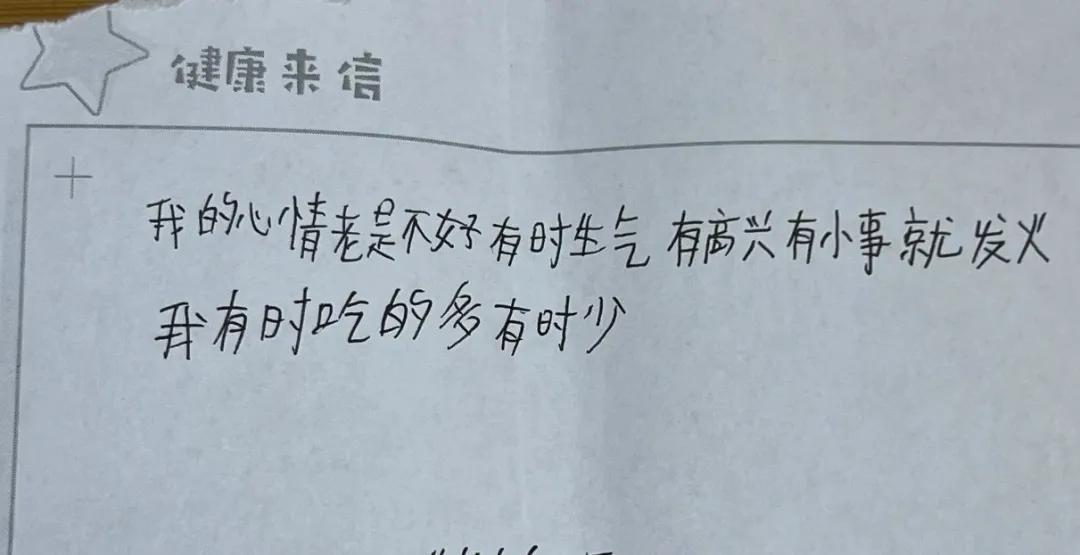 健康来信
我的心情老是不好有时生气 有高兴有小事就发火
我有时吃的多有时少